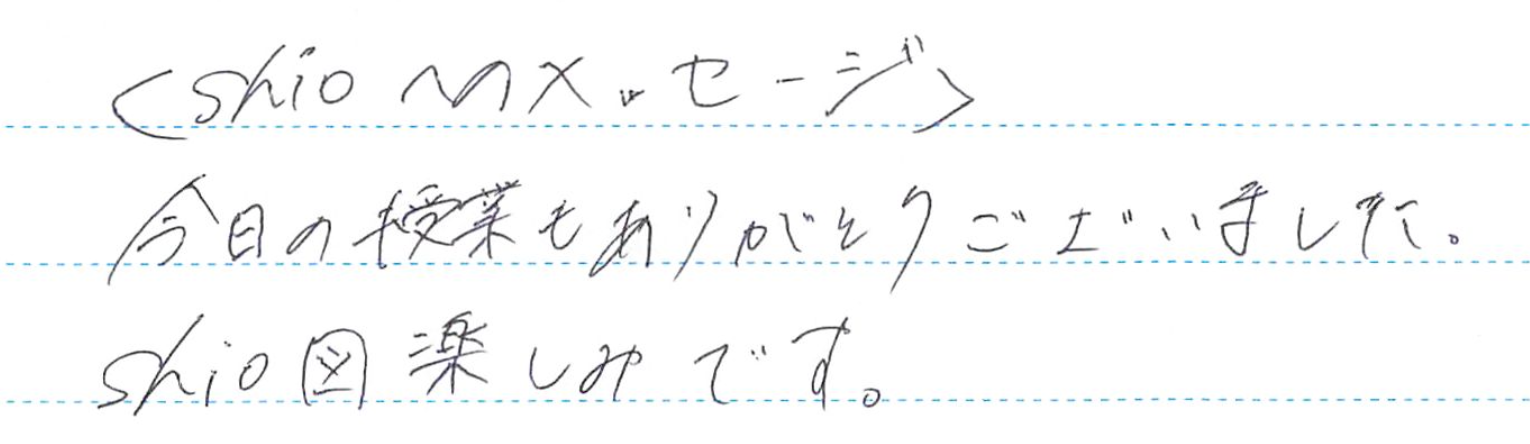 <shioへのメッセージ>
今日の授業もありがとうございました。
shio図楽しみです。